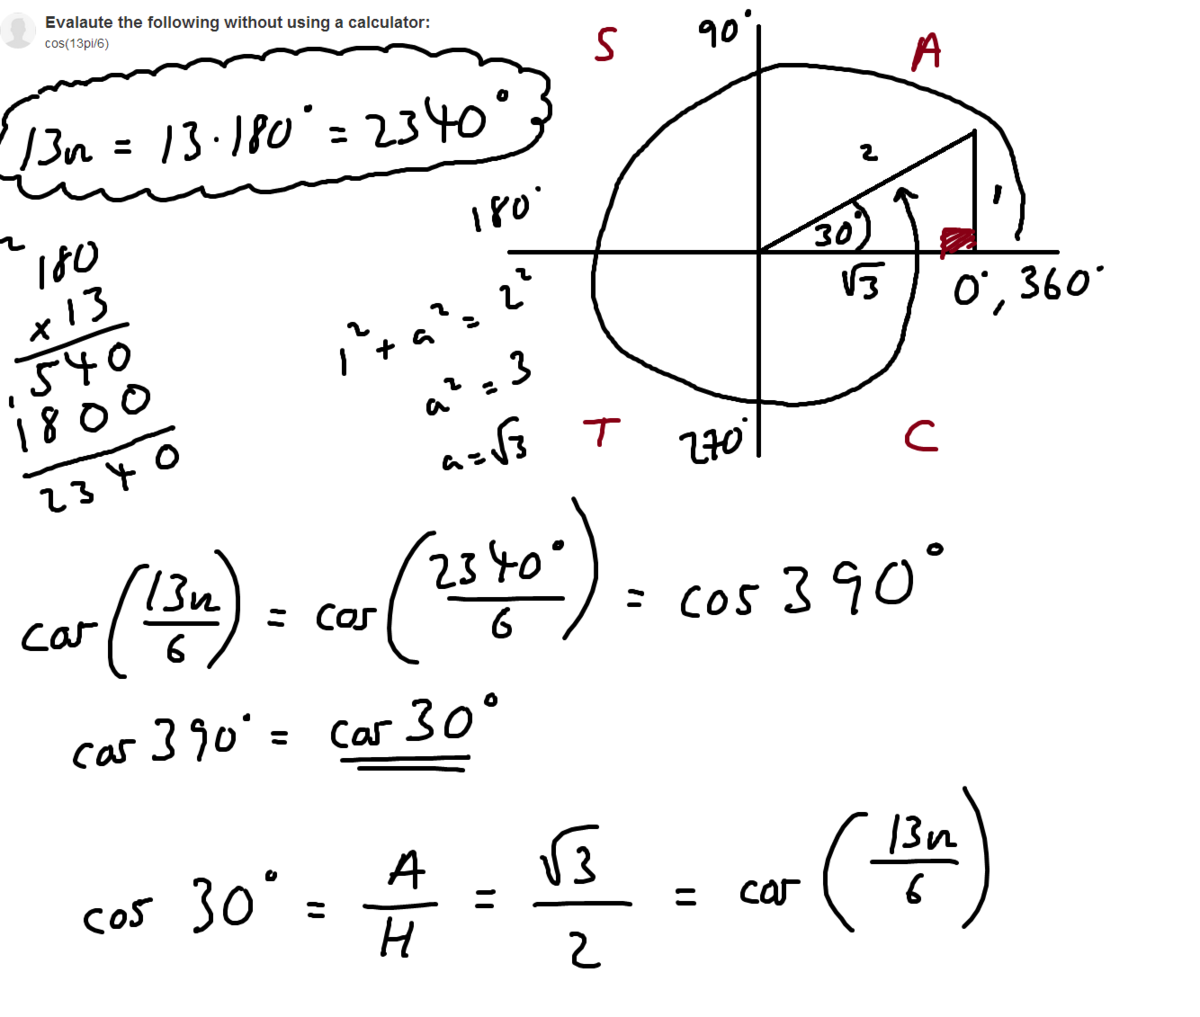 Evalaute the following without using a calculator:
cos(13pi/6)
13π = 13·180° = 2340°
2
180
x 13
540
1
1800
2340
S
90°
A
180°
2
30°
1
√3
0°, 360°
T
270°
C
1² + a² = 2²
a² = 3
a = √3
cos(13π/6) = cos(2340°/6) = cos 390°
cos 390° = cos 30°
cos 30° = A/H = √3/2 = cos(13π/6)